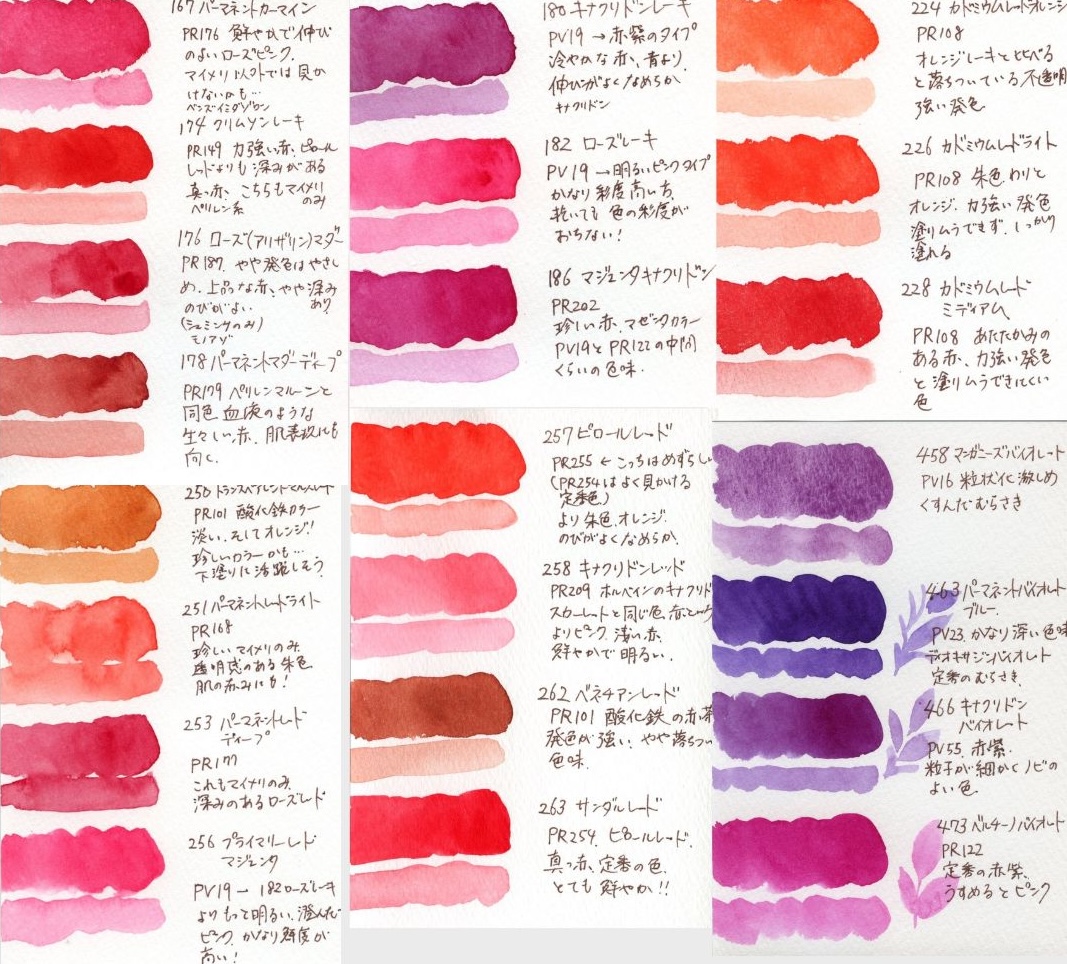 167 パーマネントカーマイン
PR176 鮮やかで伸び
のよいローズピンク。
マイメリ以外では見か
けないかも…
ベンズイミダゾロン
174 クリムソンレーキ
PR149 力強い赤、ピロール
レッドよりも深みがある
真っ赤、こちらもマイメリ
のみ
ペリレン系
176 ローズ(アリザリン)マダー
PR187. やや発色はやさし
め. 上品な赤、やや深み
のびがよい. あり
(シュミンケのみ)
モノアゾ
178 パーマネントマダーディープ
PR179 ペリレンマルーンと
同色 血液のような
生々しい赤. 肌表現にも
向く.
250
PR101 酸化鉄カラー
淡い、そしてオレンジ!
珍しいカラーかも…
下塗りに活躍しそう
251 パーマネントレッドライト
PR168
珍しい マイメリのみ
透明感のある朱色
肌の赤みにも!
253 パーマネントレッド
ディープ
PR177
これもマイメリのみ.
深みのあるローズレッド
256 プライマリーレッド
マジェンタ
PV19 → 182ローズレーキ
よりもって明るい. 澄んだ
ピンク. かなり鮮度が
高い!
180 キナクリドンレーキ
PV19 → 赤紫のタイプ
冷ややかな赤、青より.
伸びがよくなめらか
キナクリドン
182 ローズレーキ
PV19 → 明るいピンクタイプ
かなり彩度高い方.
乾いても色の彩度が
おちない!
186 マジェンタキナクリドン
PR202
珍しい赤、マゼンタカラー
PV19とPR122の中間
くらいの色味.
257 ピロールレッド
PR255 ← こっちはめずらし
(PR254はよく見かける
定番色)
より朱色、オレンジ.
のびがよくなめらか.
258 キナクリドンレッド
PR209 ホルベインのキナクリド
スカーレットと同じ色
よりピンク. 浅い赤.
鮮やかで明るい.
262 ベネチアンレッド
PR101 酸化鉄の赤茶
発色が強い、やや落ちつい
色味.
263 サンダルレッド
PR254. ピロールレッド.
真っ赤、定番の色.
とても鮮やか!!
224 カドミウムレッドオレンジ
PR108
オレンジレーキと比べる
と落ちついている不透明
強い発色
226 カドミウムレッドライト
PR108 朱色. わりと
オレンジ. 力強い発色
塗りムラできず. しっかり
塗れる
228 カドミウムレッド
ミディアム
PR108 あたたかみの
ある赤、力強い発色
と塗りムラできにくい
色
458 マンガニーズバイオレット
PV16 粒状化激しめ
くすんだむらさき
463 パーマネントバイオレット
ブルー.
PV23. かなり深い色味
ディオキサジンバイオレット
定番のむらさき.
466 キナクリドン
バイオレット
PV55. 赤紫.
粒子が細かくノビの
よい色.
473 ベルチーノバイオレット
PR122
定番の赤紫.
うすめるとピンク